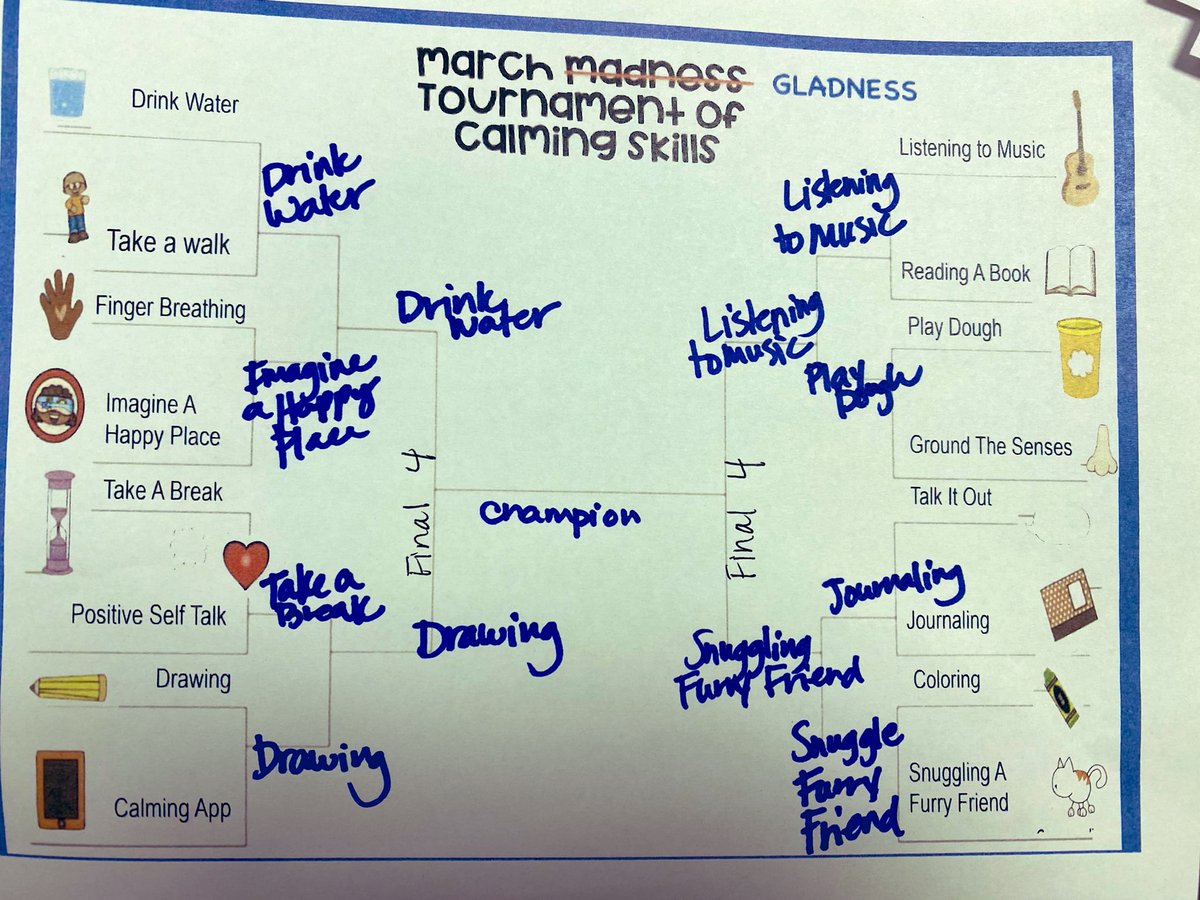 March madness GLADNESS
Tournament of
Calming Skills
Drink Water
Take a walk
Finger Breathing
Imagine A
Happy Place
Take A Break
Positive Self Talk
Drawing
Calming App
Drink
Water
Imagine
a Happy
Place
Take a
Break
Drawing
Drink
Water
Drawing
Final 4
Champion
Final 4
Listening
to Music
Snuggling
Furry Friend
Listening
to Music
Play
Dough
Journaling
Snuggle
Furry
Friend
Listening to Music
Reading A Book
Play Dough
Ground The Senses
Talk It Out
Journaling
Coloring
Snuggling A
Furry Friend